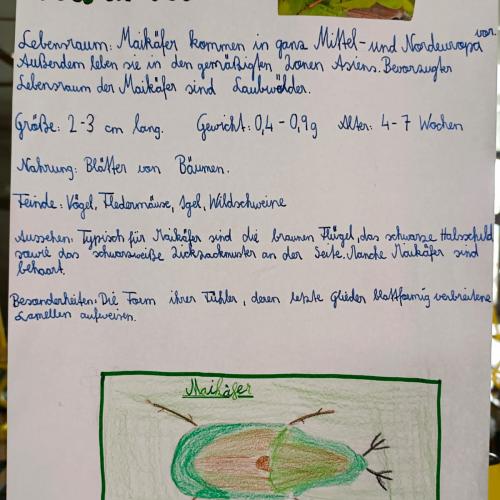 Lebensraum: Maikäfer kommen in ganz Mittel- und Nordeuropa vor.
Außerdem leben sie in den gemäßigten Zonen Asiens. Bevorzugter
Lebensraum der Maikäfer sind Laubwälder.
Größe: 2-3 cm lang. Gewicht: 0,4-0,9g Alter: 4-7 Wochen
Nahrung: Blätter von Bäumen.
Feinde: Vögel, Fledermäuse, Igel, Wildschweine
Aussehen: Typisch für Maikäfer sind die braunen Flügel, das schwarze Halsschild
sowie das schwarzweiße Zickzackmuster an der Seite. Manche Maikäfer sind
behaart.
Besonderheiten: Die Form ihrer Fühler, deren letzte Glieder blattförmig verbreiterte
Lamellen aufweisen.
Maikäfer